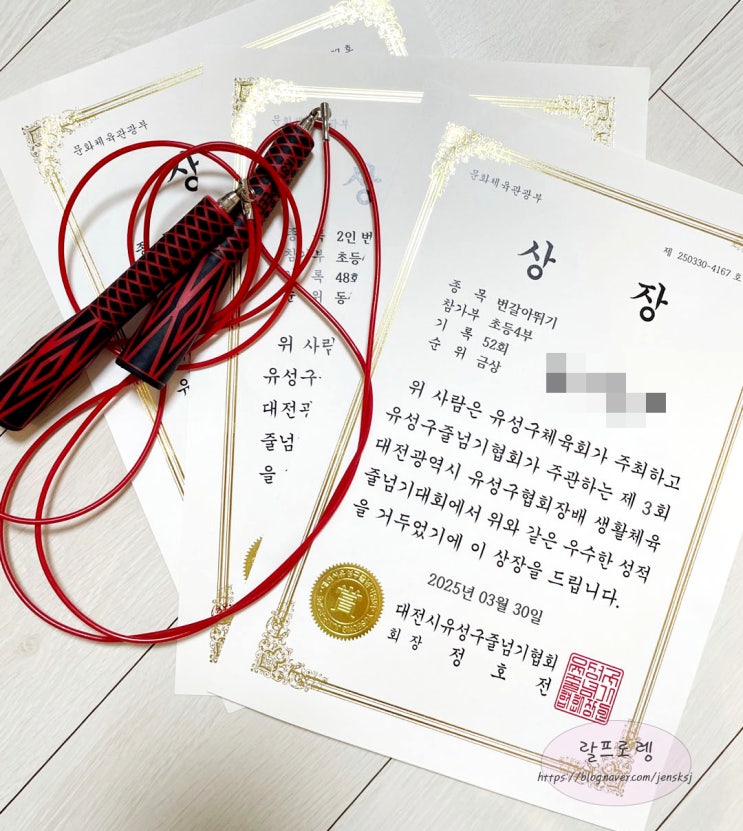 호
문화체육관광부
상
문화체육관광부
상
종 목 2인 번
참가부 초등
기 록 48회
순 위 동
위 사람
유성구
대전광
줄넘
을
문화체육관광부
제 250330-4167 호
상 장
종 목 번갈아뛰기
참가부 초등4부
기 록 52회
순 위 금상
위 사람은 유성구체육회가 주최하고
유성구줄넘기협회가 주관하는 제 3회
대전광역시 유성구협회장배 생활체육
줄넘기대회에서 위와 같은 우수한 성적
을 거두었기에 이 상장을 드립니다.
2025년 03월 30일
대전시유성구줄넘기협회
회 장 정 호 전
랄프로렝
https://blognaver.com/jensksj